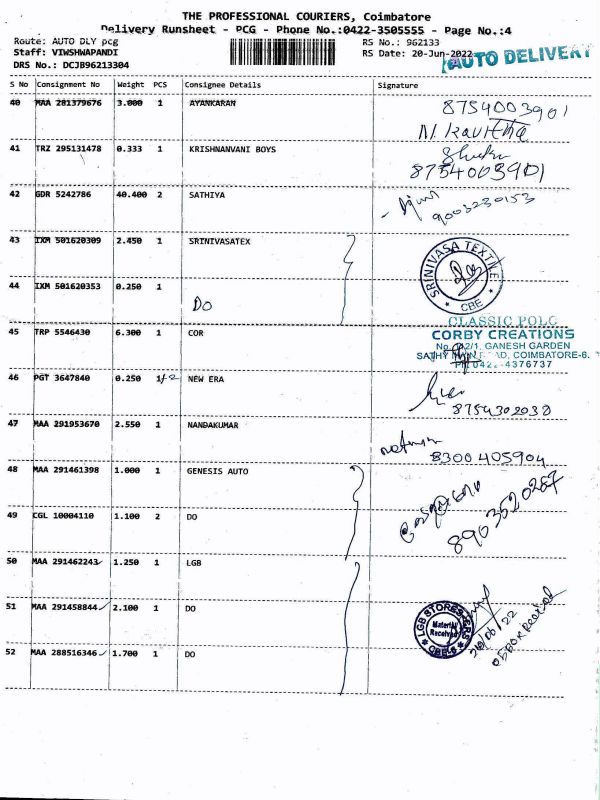 THE PROFESSIONAL COURIERS, Coimbatore
Delivery Runsheet - PCG - Phone No.:0422-3505555 - Page No.:4
Route: AUTO DLY pcg
RS No.: 962133
Staff: VIWSHWAPANDI
RS Date: 20-Jun-2022
AUTO DELIVERY
DRS No.: DCJB96213304
S No Consignment No Weight PCS Consignee Details Signature
40 MAA 281379676 3.000 1 AYANKARAN 8754003901
N. Kavitha
41 TRZ 295131478 0.333 1 KRISHNANVANI BOYS
8754003901
42 GDR 5242786 40.400 2 SATHIYA 9003230153
43 IXM 501620309 2.450 1 SRINIVASATEX
SRINIVASA TEXTILE
CBE
44 IXM 501620353 0.250 1
DO
CLASSIC POLO
45 TRP 5546430 6.300 1 COR CORBY CREATIONS
GANESH GARDEN
COIMBATORE-6.
4376737
46 PGT 3647840 0.250 1/2 NEW ERA
8754302038
47 MAA 291953670 2.550 1 NANDAKUMAR
8300405904
48 MAA 291461398 1.000 1 GENESIS AUTO
8903520267
49 CGL 10004110 1.100 2 DO
50 MAA 291462243 1.250 1 LGB
51 MAA 291458844 2.100 1 DO
LGB STORES
Material
Received
CBE
52 MAA 288516346 1.700 1 DO